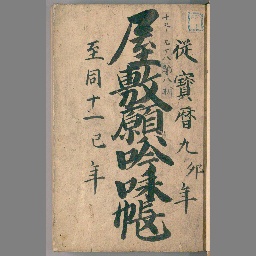 從寶暦九卯年
屋敷願吟味帳
至同十一巳年